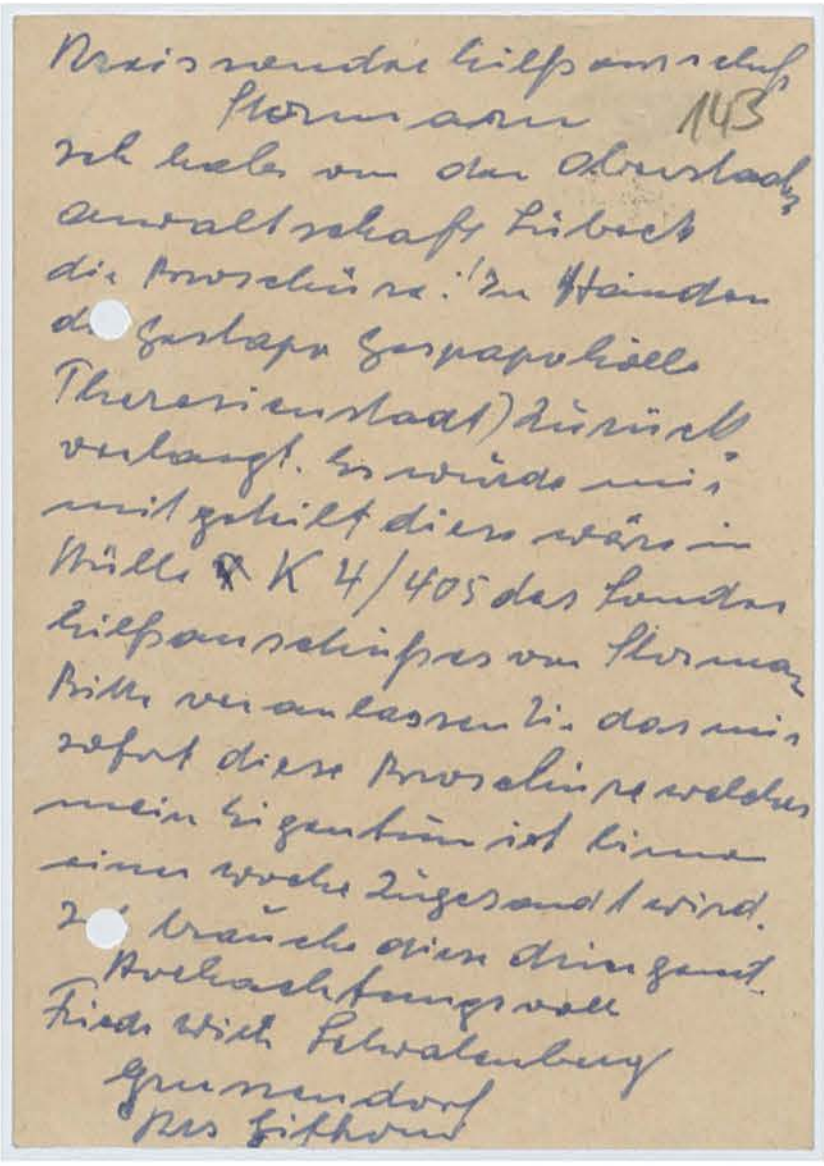 Kreissonderhilfsausschuß
Stormarn 143
Ich habe von der Oberstaats
anwaltschaft Lübeck
die Broschüre: "In Händen
d Gestapo Gespapohölle
Theresienstadt) Zurück
verlangt. Es würde mir
mit geteilt diese wäre in
Hülle K 4/405 des Sonder
hilfsauschußes von Storman
Bitte veranlassen Sie das mir
sofort diese Broschüre welches
mein Eigentum ist binnen
einer woche Zugesandt wird.
I brauche diese dringend.
Hochachtungsvoll
Friedrich Schwalenberg
Grussendorf
Krs Gifhorn